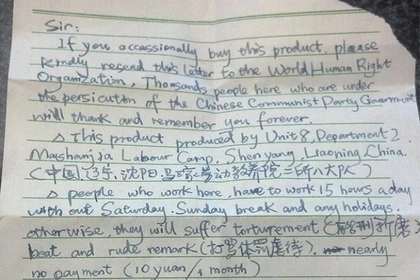 Sir:
If you accassionally buy this product, please
kindly resend this letter to the World Human Right
Organization, Thousands people here who are under
the persicution of the Chinese Communist Party Government
will thank and remember you forever.
△ This product produced by Unit 8, Department 2
Mashanjia Labour Camp, Shen yang, Liaoning, China.
(中国,辽宁,沈阳,马三家劳动教养院二所八大队)
△ people who work here, have to work 15 hours a day
with out Saturday, Sunday break and any holidays.
otherwise, they will suffer torturement (折磨)
beat and rude remark (打骂体罚虐待). nearly
no payment (10 yuan/1 month)